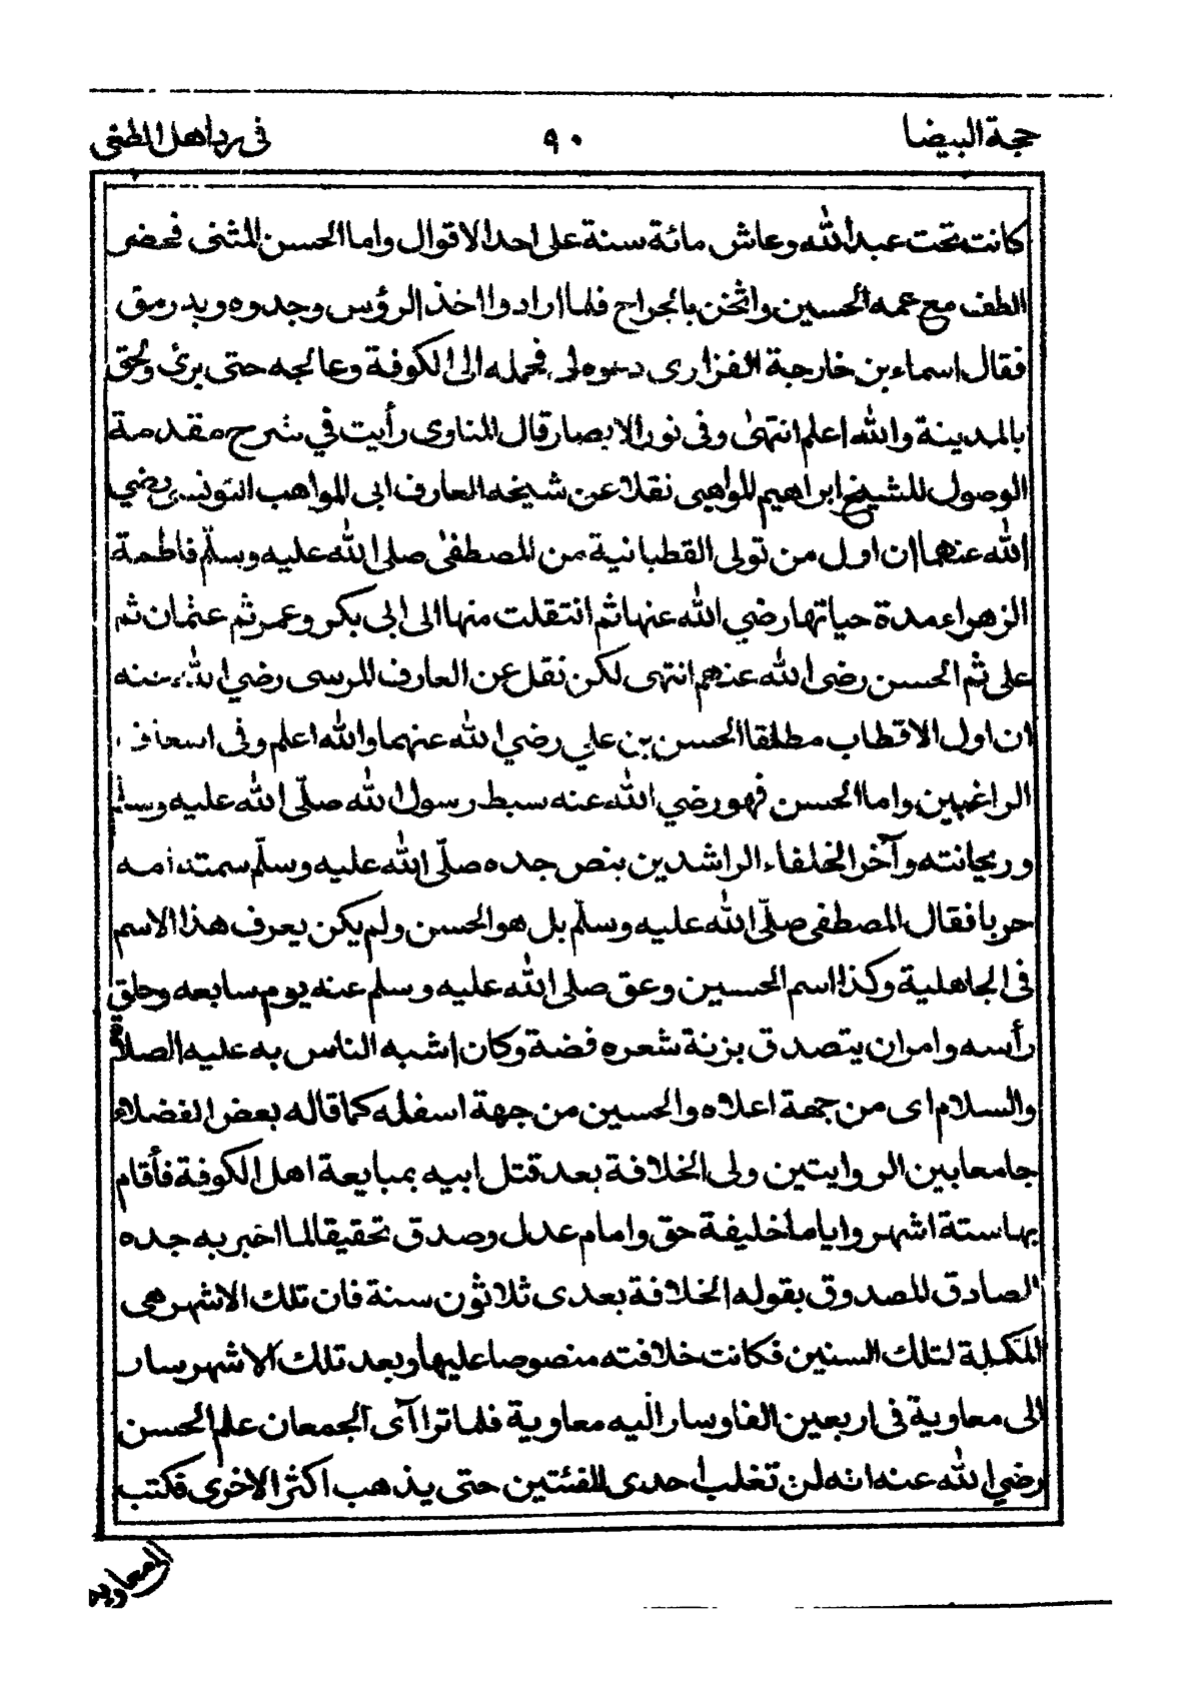 حجة البيضا
٩٠
في رد اهل الطغى
كانت تحت عبد الله وعاش مائة سنة على احد الاقوال واما الحسن المثنى فحضر
الطف مع عمه الحسين واثخن بالجراح فلما ارادوا اخذ الرؤس وجدوه وبه رمق
فقال اسماء بن خارجة الفزارى دعوه لى فحمله الى الكوفة وعالجه حتى برئ ولحق
بالمدينة والله اعلم انتهى وفى نور الابصار قال المناوى رأيت في شرح مقدمة
الوصول للشيخ ابراهيم المواهبى نقلا عن شيخه العارف ابى المواهب التونسى رضي
الله عنهما ان اول من تولى القطبانية من المصطفى صلى الله عليه وسلّم فاطمة
الزهراء مدة حياتها رضي الله عنها ثم انتقلت منها الى ابى بكر وعمر ثم عثمان ثم
على ثم الحسن رضى الله عنهم انتهى لكن نقل عن العارف المرسى رضي الله عنه
ان اول الاقطاب مطلقا الحسن بن علي رضي الله عنهما والله اعلم وفى اسعاف
الراغبين واما الحسن فهو رضي الله عنه سبط رسول الله صلّى الله عليه وسلم
وريحانته وآخر الخلفاء الراشدين بنص جده صلّى الله عليه وسلّم سمته امه
حربا فقال المصطفى صلّى الله عليه وسلّم بل هو الحسن ولم يكن يعرف هذا الاسم
فى الجاهلية وكذا اسم الحسين وعق صلى الله عليه وسلم عنه يوم سابعه وحلق
رأسه وامر ان يتصدق بزنة شعره فضة وكان اشبه الناس به عليه الصلاة
والسلام اى من جهة اعلاه والحسين من جهة اسفله كما قاله بعض الفضلاء
جامعا بين الروايتين ولى الخلافة بعد قتل ابيه بمبايعة اهل الكوفة فأقام
بها ستة اشهر واياما خليفة حق وامام عدل وصدق تحقيقا لما اخبر به جده
الصادق المصدوق بقوله الخلافة بعدى ثلاثون سنة فان تلك الاشهر هى
المكملة لتلك السنين فكانت خلافته منصوصا عليها وبعد تلك الاشهر سار
الى معاوية فى اربعين الفا وسار اليه معاوية فلما تراآى الجمعان علم الحسن
رضي الله عنه انه لن تغلب احدى الفئتين حتى يذهب اكثر الاخرى فكتب
الى معاويه